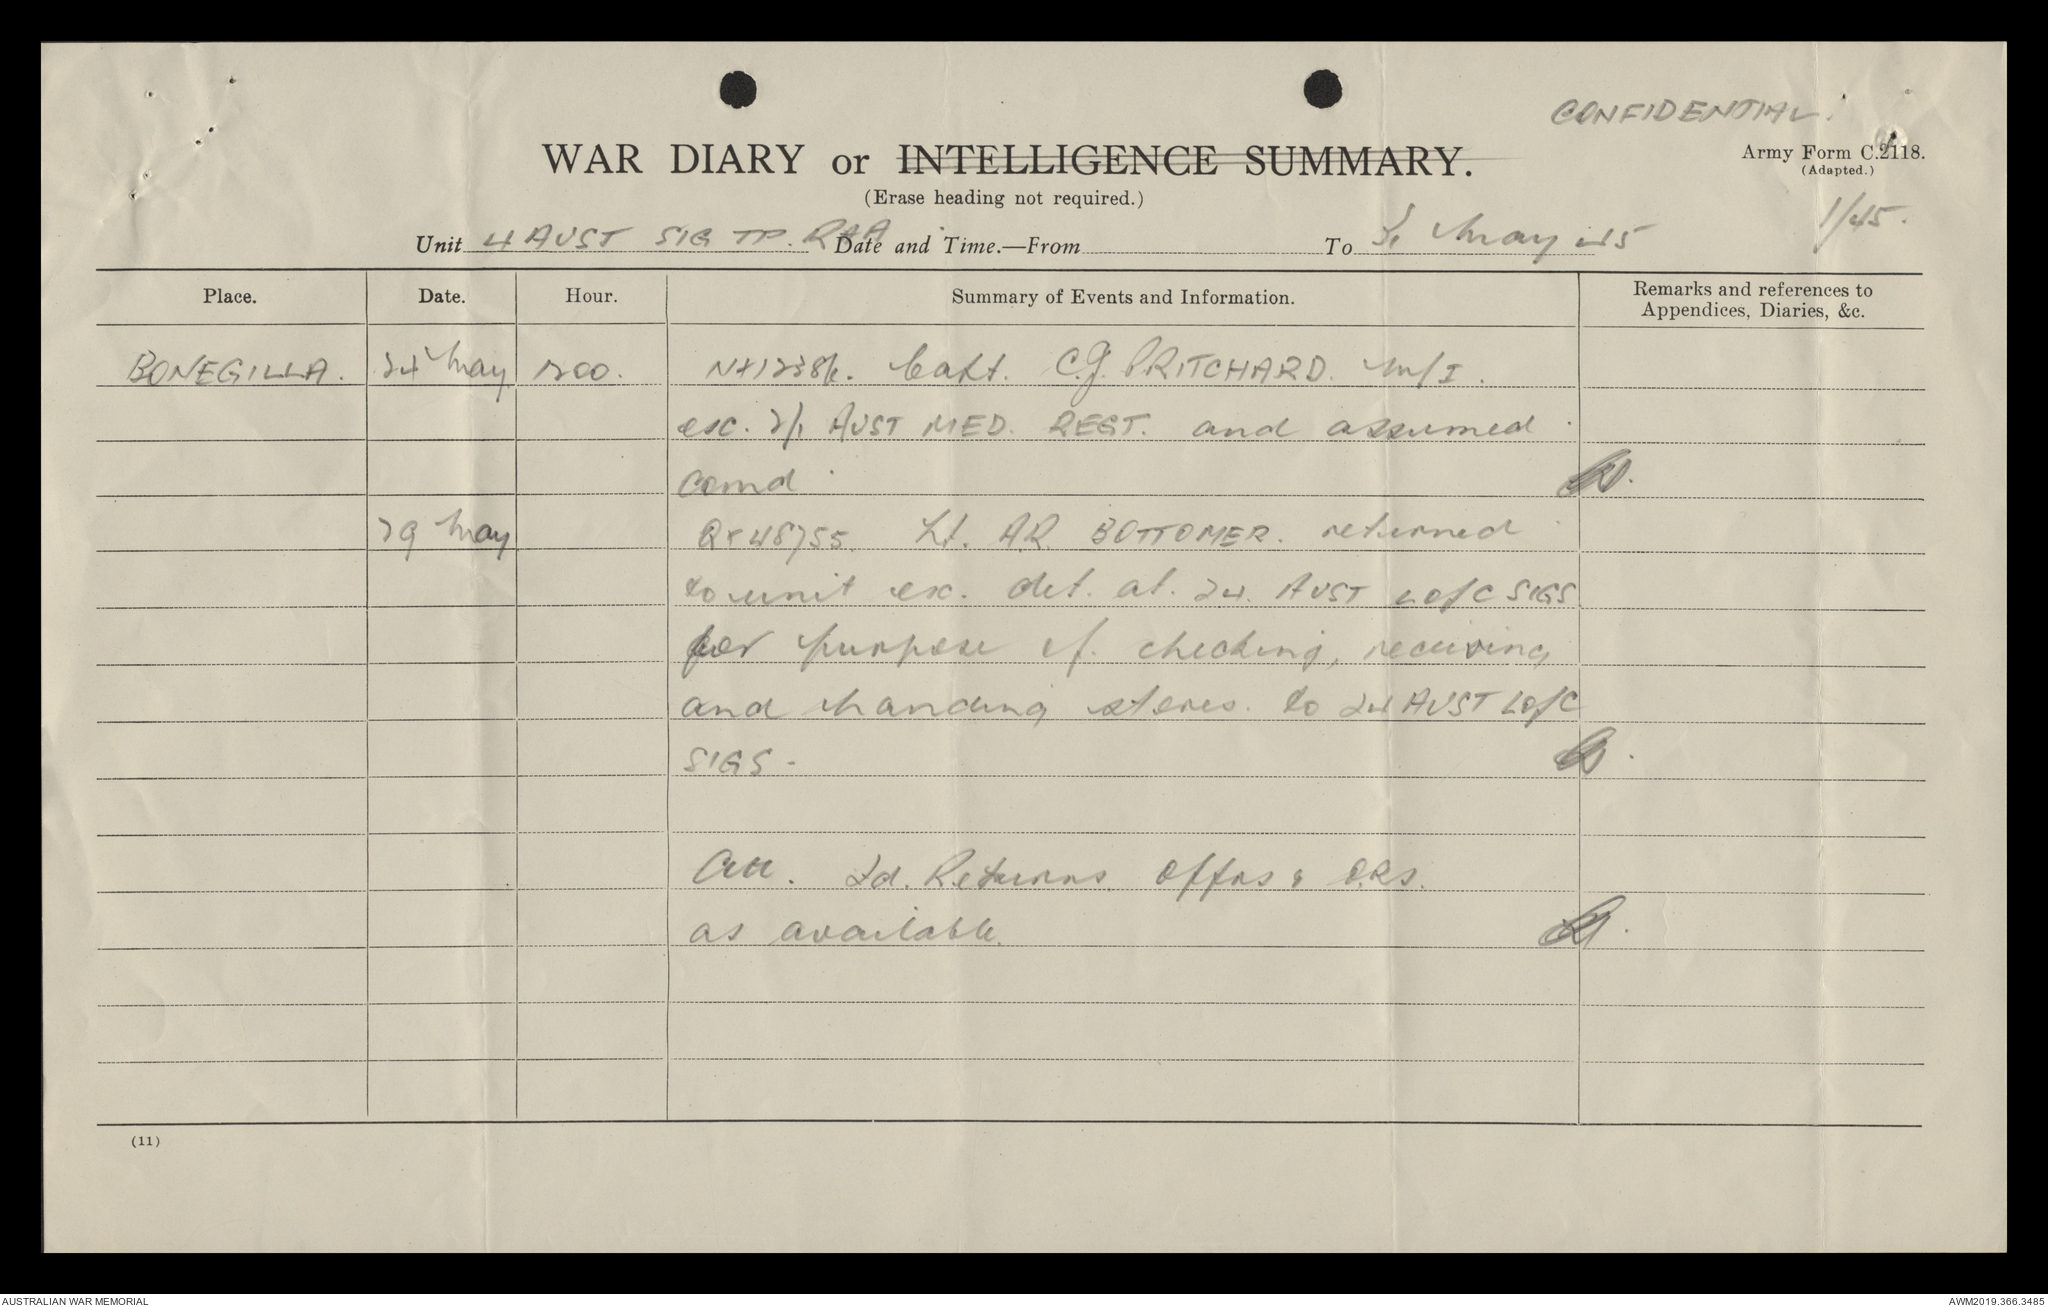 CONFIDENTIAL.
WAR DIARY or INTELLIGENCE SUMMARY.
Army Form C.2118.
(Adapted.)
(Erase heading not required.)
1/45.
Unit 4 AUST SIG TP. RAA. Date and Time.—From To 31 May 45
Place. Date. Hour. Summary of Events and Information. Remarks and references to Appendices, Diaries, &c.
BONEGILLA. 24 May 1200. Capt. C.J. PRITCHARD. M/I.
ex. 2/1 AUST MED. REGT. and assumed
comd.
29 May QX48755. Lt. A.R. BOTTOMER. returned
to unit ex. det. at. 24. AUST L of C SIGS
for purpose of. checking, receiving
and handing stores. to 24 AUST L of C
SIGS -
Att. Fd. Returns. Offrs & O.Rs.
as available.
(11)
AUSTRALIAN WAR MEMORIAL
AWM2019.366.3485